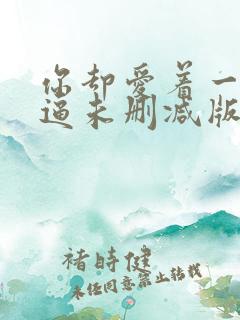 你却爱着一
逼未删减版
褚时健
未经同意禁止转载